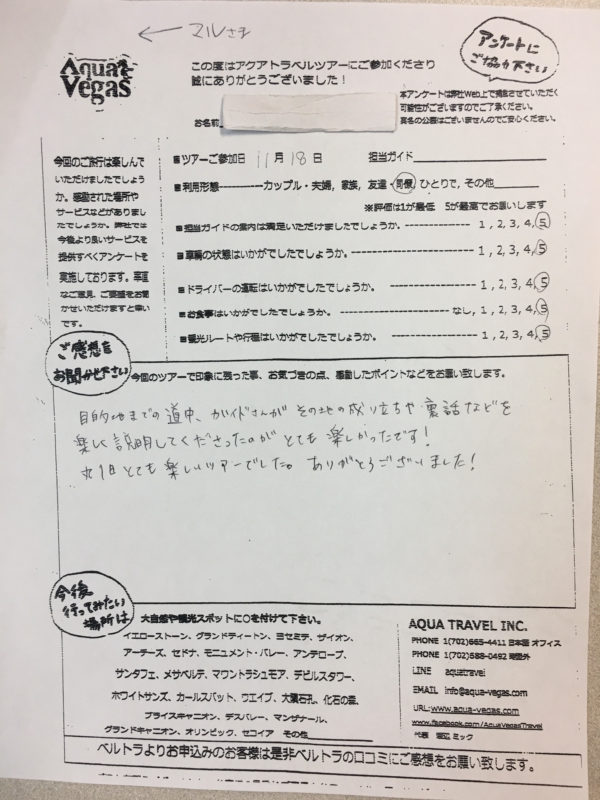 ← マルさま
Aqua Vegas
この度はアクアトラベルツアーにご参加くださり
誠にありがとうございました！
アンケートに
ご協力下さい
本アンケートは弊社Web上で掲載させていただく
可能性がございますのでご了承ください。
実名の公表はございませんのでご安心ください。
お名前
今回のご旅行は楽しんで
いただけましたでしょう
か。感動された場所や
サービスなどがありまし
たでしょうか。弊社では
今後より良いサービスを
提供すべくアンケートを
実施しております。率直
なご意見、ご要望をお聞
かせいただけますと幸い
です。
■ツアーご参加日 11月18日 担当ガイド
■利用形態----------カップル・夫婦, 家族, 友達・同僚, ひとりで, その他
※評価は1が最低 5が最高でお願いします
■担当ガイドの案内は満足いただけましたでしょうか。 ---------------- 1, 2, 3, 4, 5
■車輛の状態はいかがでしたでしょうか。---------------- 1, 2, 3, 4, 5
■ドライバーの運転はいかがでしたでしょうか。 ---------------- 1, 2, 3, 4, 5
■お食事はいかがでしたでしょうか。 ---------------- なし, 1, 2, 3, 4, 5
■観光ルートや行程はいかがでしたでしょうか。 ---------------- 1, 2, 3, 4, 5
ご感想を
お聞かせ下さい
今回のツアーで印象に残った事、お気づきの点、感動したポイントなどをお願い致します。
目的地までの道中、ガイドさんが その地の成り立ちや 裏話などを
楽しく説明してくださったのが とても 楽しかったです！
丸1日とても楽しいツアーでした。 ありがとうございました！
今後
行ってみたい
場所は
大自然や観光スポットに○を付けて下さい。
イエローストーン、グランドティートン、ヨセミテ、ザイオン、
アーチーズ、セドナ、モニュメント・バレー、アンテロープ、
サンタフェ、メサベルテ、マウントラシュモア、デビルスタワー、
ホワイトサンズ、カールスバット、ウエイブ、大隕石孔、化石の森、
ブライスキャニオン、デスバレー、マンザナール、
グランドキャニオン、オリンピック、セコイア その他
AQUA TRAVEL INC.
PHONE 1(702)665-4411 日本語 オフィス
PHONE 1(702)588-0492 時間外
LINE aquatravel
EMAIL info@aqua-vegas.com
URL:www.aqua-vegas.com
www.facebook.com/AquaVegasTravel
代表 渡辺 ミック
ベルトラよりお申込みのお客様は是非ベルトラの口コミにご感想をお願い致します。